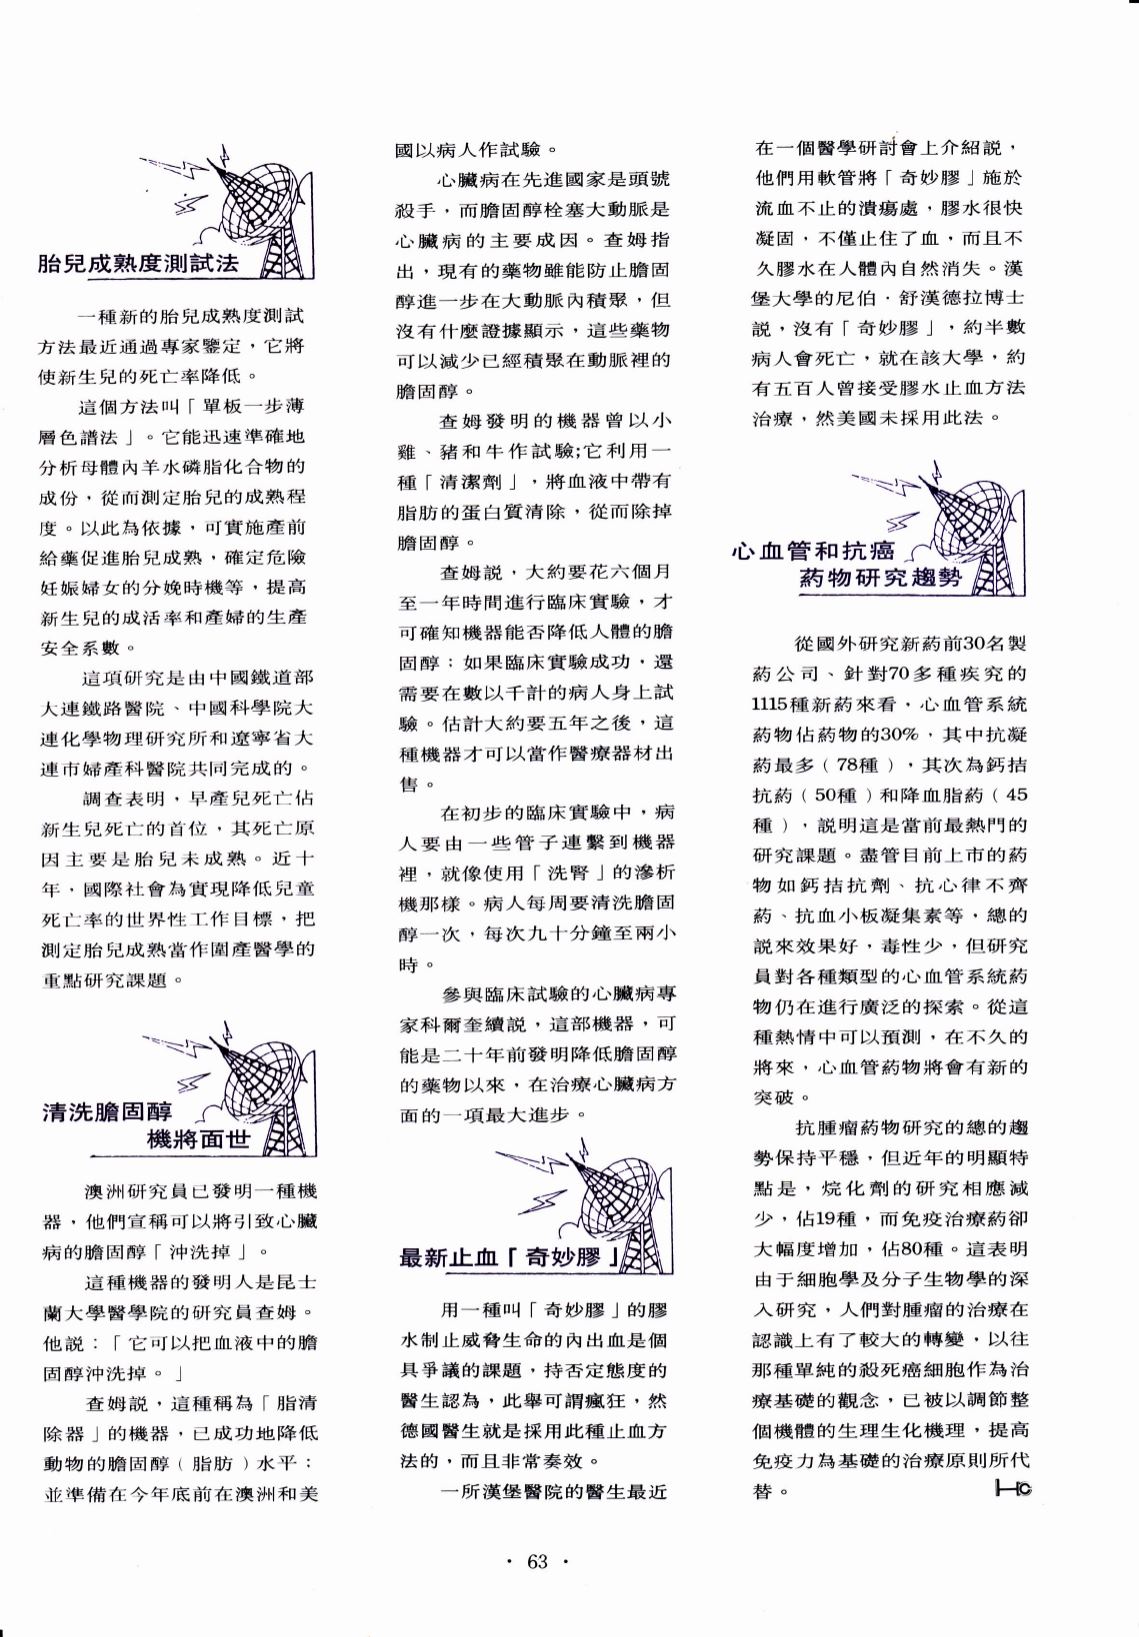 胎兒成熟度測試法
一種新的胎兒成熟度測試
方法最近通過專家鑒定，它將
使新生兒的死亡率降低。
這個方法叫「單板一步薄
層色譜法」。它能迅速準確地
分析母體內羊水磷脂化合物的
成份，從而測定胎兒的成熟程
度。以此為依據，可實施產前
給藥促進胎兒成熟，確定危險
妊娠婦女的分娩時機等，提高
新生兒的成活率和產婦的生產
安全系數。
這項研究是由中國鐵道部
大連鐵路醫院、中國科學院大
連化學物理研究所和遼寧省大
連市婦產科醫院共同完成的。
調查表明，早產兒死亡佔
新生兒死亡的首位，其死亡原
因主要是胎兒未成熟。近十
年，國際社會為實現降低兒童
死亡率的世界性工作目標，把
測定胎兒成熟當作圍產醫學的
重點研究課題。
清洗膽固醇
機將面世
澳洲研究員已發明一種機
器，他們宣稱可以將引致心臟
病的膽固醇「沖洗掉」。
這種機器的發明人是昆士
蘭大學醫學院的研究員查姆。
他説：「它可以把血液中的膽
固醇沖洗掉。」
查姆説，這種稱為「脂清
除器」的機器，已成功地降低
動物的膽固醇（脂肪）水平；
並準備在今年底前在澳洲和美
國以病人作試驗。
心臟病在先進國家是頭號
殺手，而膽固醇栓塞大動脈是
心臟病的主要成因。查姆指
出，現有的藥物雖能防止膽固
醇進一步在大動脈內積聚，但
沒有什麼證據顯示，這些藥物
可以減少已經積聚在動脈裡的
膽固醇。
查姆發明的機器曾以小
雞、豬和牛作試驗;它利用一
種「清潔劑」，將血液中帶有
脂肪的蛋白質清除，從而除掉
膽固醇。
查姆説，大約要花六個月
至一年時間進行臨床實驗，才
可確知機器能否降低人體的膽
固醇；如果臨床實驗成功，還
需要在數以千計的病人身上試
驗。估計大約要五年之後，這
種機器才可以當作醫療器材出
售。
在初步的臨床實驗中，病
人要由一些管子連繫到機器
裡，就像使用「洗腎」的滲析
機那樣。病人每周要清洗膽固
醇一次，每次九十分鐘至兩小
時。
參與臨床試驗的心臟病專
家科爾奎續説，這部機器，可
能是二十年前發明降低膽固醇
的藥物以來，在治療心臟病方
面的一項最大進步。
最新止血「奇妙膠」
用一種叫「奇妙膠」的膠
水制止威脅生命的內出血是個
具爭議的課題，持否定態度的
醫生認為，此舉可謂瘋狂，然
德國醫生就是採用此種止血方
法的，而且非常奏效。
一所漢堡醫院的醫生最近
在一個醫學研討會上介紹説，
他們用軟管將「奇妙膠」施於
流血不止的潰瘍處，膠水很快
凝固，不僅止住了血，而且不
久膠水在人體內自然消失。漢
堡大學的尼伯‧舒漢德拉博士
説，沒有「奇妙膠」，約半數
病人會死亡，就在該大學，約
有五百人曾接受膠水止血方法
治療，然美國未採用此法。
心血管和抗癌
葯物研究趨勢
從國外研究新葯前30名製
葯公司、針對70多種疾究的
1115種新葯來看，心血管系統
葯物佔葯物的30%，其中抗凝
葯最多（78種），其次為鈣拮
抗葯（50種）和降血脂葯（45
種），説明這是當前最熱門的
研究課題。盡管目前上市的葯
物如鈣拮抗劑、抗心律不齊
葯、抗血小板凝集素等，總的
説來效果好，毒性少，但研究
員對各種類型的心血管系統葯
物仍在進行廣泛的探索。從這
種熱情中可以預測，在不久的
將來，心血管葯物將會有新的
突破。
抗腫瘤葯物研究的總的趨
勢保持平穩，但近年的明顯特
點是，烷化劑的研究相應減
少，佔19種，而免疫治療葯卻
大幅度增加，佔80種。這表明
由于細胞學及分子生物學的深
入研究，人們對腫瘤的治療在
認識上有了較大的轉變，以往
那種單純的殺死癌細胞作為治
療基礎的觀念，已被以調節整
個機體的生理生化機理，提高
免疫力為基礎的治療原則所代
替。
HC
· 63 ·